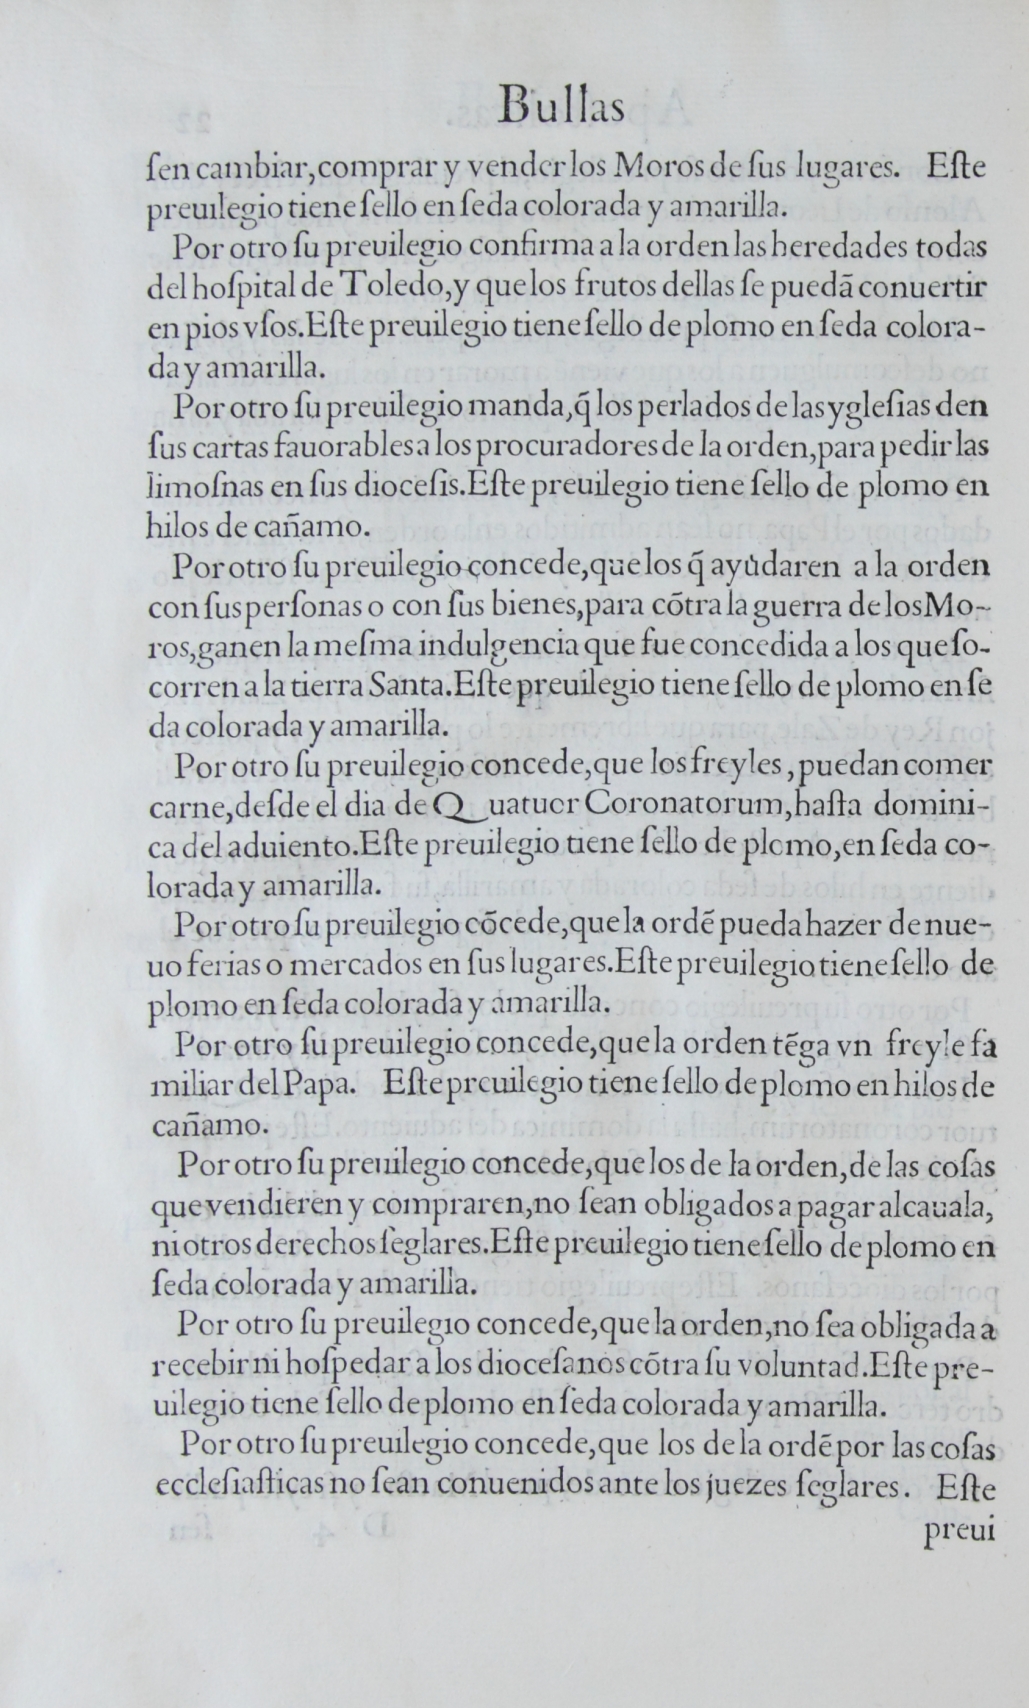 Bullas
ſen cambiar, comprar y vender los Moros de ſus lugares. Eſte
preuilegio tiene ſello en ſeda colorada y amarilla.
Por otro ſu preuilegio confirma a la orden las heredades todas
del hoſpital de Toledo, y que los frutos dellas ſe puedã conuertir
en pios vſos. Eſte preuilegio tiene ſello de plomo en ſeda colora-
da y amarilla.
Por otro ſu preuilegio manda, q̃ los perlados de las ygleſias den
ſus cartas fauorables a los procuradores de la orden, para pedir las
limoſnas en ſus dioceſis. Eſte preuilegio tiene ſello de plomo en
hilos de cañamo.
Por otro ſu preuilegio concede, que los q̃ ayudaren a la orden
con ſus perſonas o con ſus bienes, para cõtra la guerra de los Mo-
ros, ganen la meſma indulgencia que fue concedida a los que ſo-
corren a la tierra Santa. Eſte preuilegio tiene ſello de plomo en ſe
da colorada y amarilla.
Por otro ſu preuilegio concede, que los freyles, puedan comer
carne, deſde el dia de Quatuor Coronatorum, haſta domini-
ca del aduiento. Eſte preuilegio tiene ſello de plomo, en ſeda co-
lorada y amarilla.
Por otro ſu preuilegio cõcede, que la ordẽ pueda hazer de nue-
uo ferias o mercados en ſus lugares. Eſte preuilegio tiene ſello de
plomo en ſeda colorada y amarilla.
Por otro ſu preuilegio concede, que la orden tẽga vn freyle fa
miliar del Papa. Eſte preuilegio tiene ſello de plomo en hilos de
cañamo.
Por otro ſu preuilegio concede, que los de la orden, de las coſas
que vendieren y compraren, no ſean obligados a pagar alcauala,
ni otros derechos ſeglares. Eſte preuilegio tiene ſello de plomo en
ſeda colorada y amarilla.
Por otro ſu preuilegio concede, que la orden, no ſea obligada a
recebir ni hoſpedar a los dioceſanos cõtra ſu voluntad. Eſte pre-
uilegio tiene ſello de plomo en ſeda colorada y amarilla.
Por otro ſu preuilegio concede, que los de la ordẽ por las coſas
eccleſiaſticas no ſean conuenidos ante los juezes ſeglares. Eſte
preui